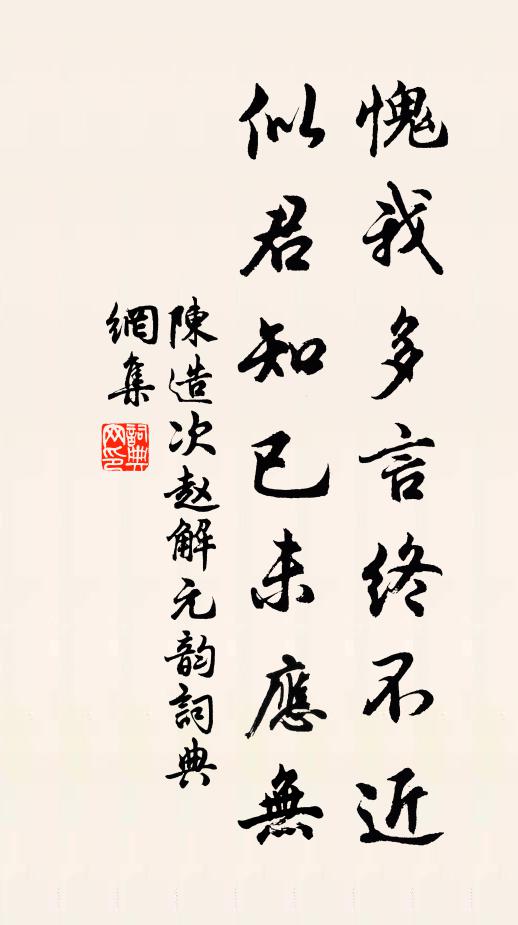 愧我多言終不近
似君知已未應無
陳造次赵解元韵詞典
網集
詞典
网印